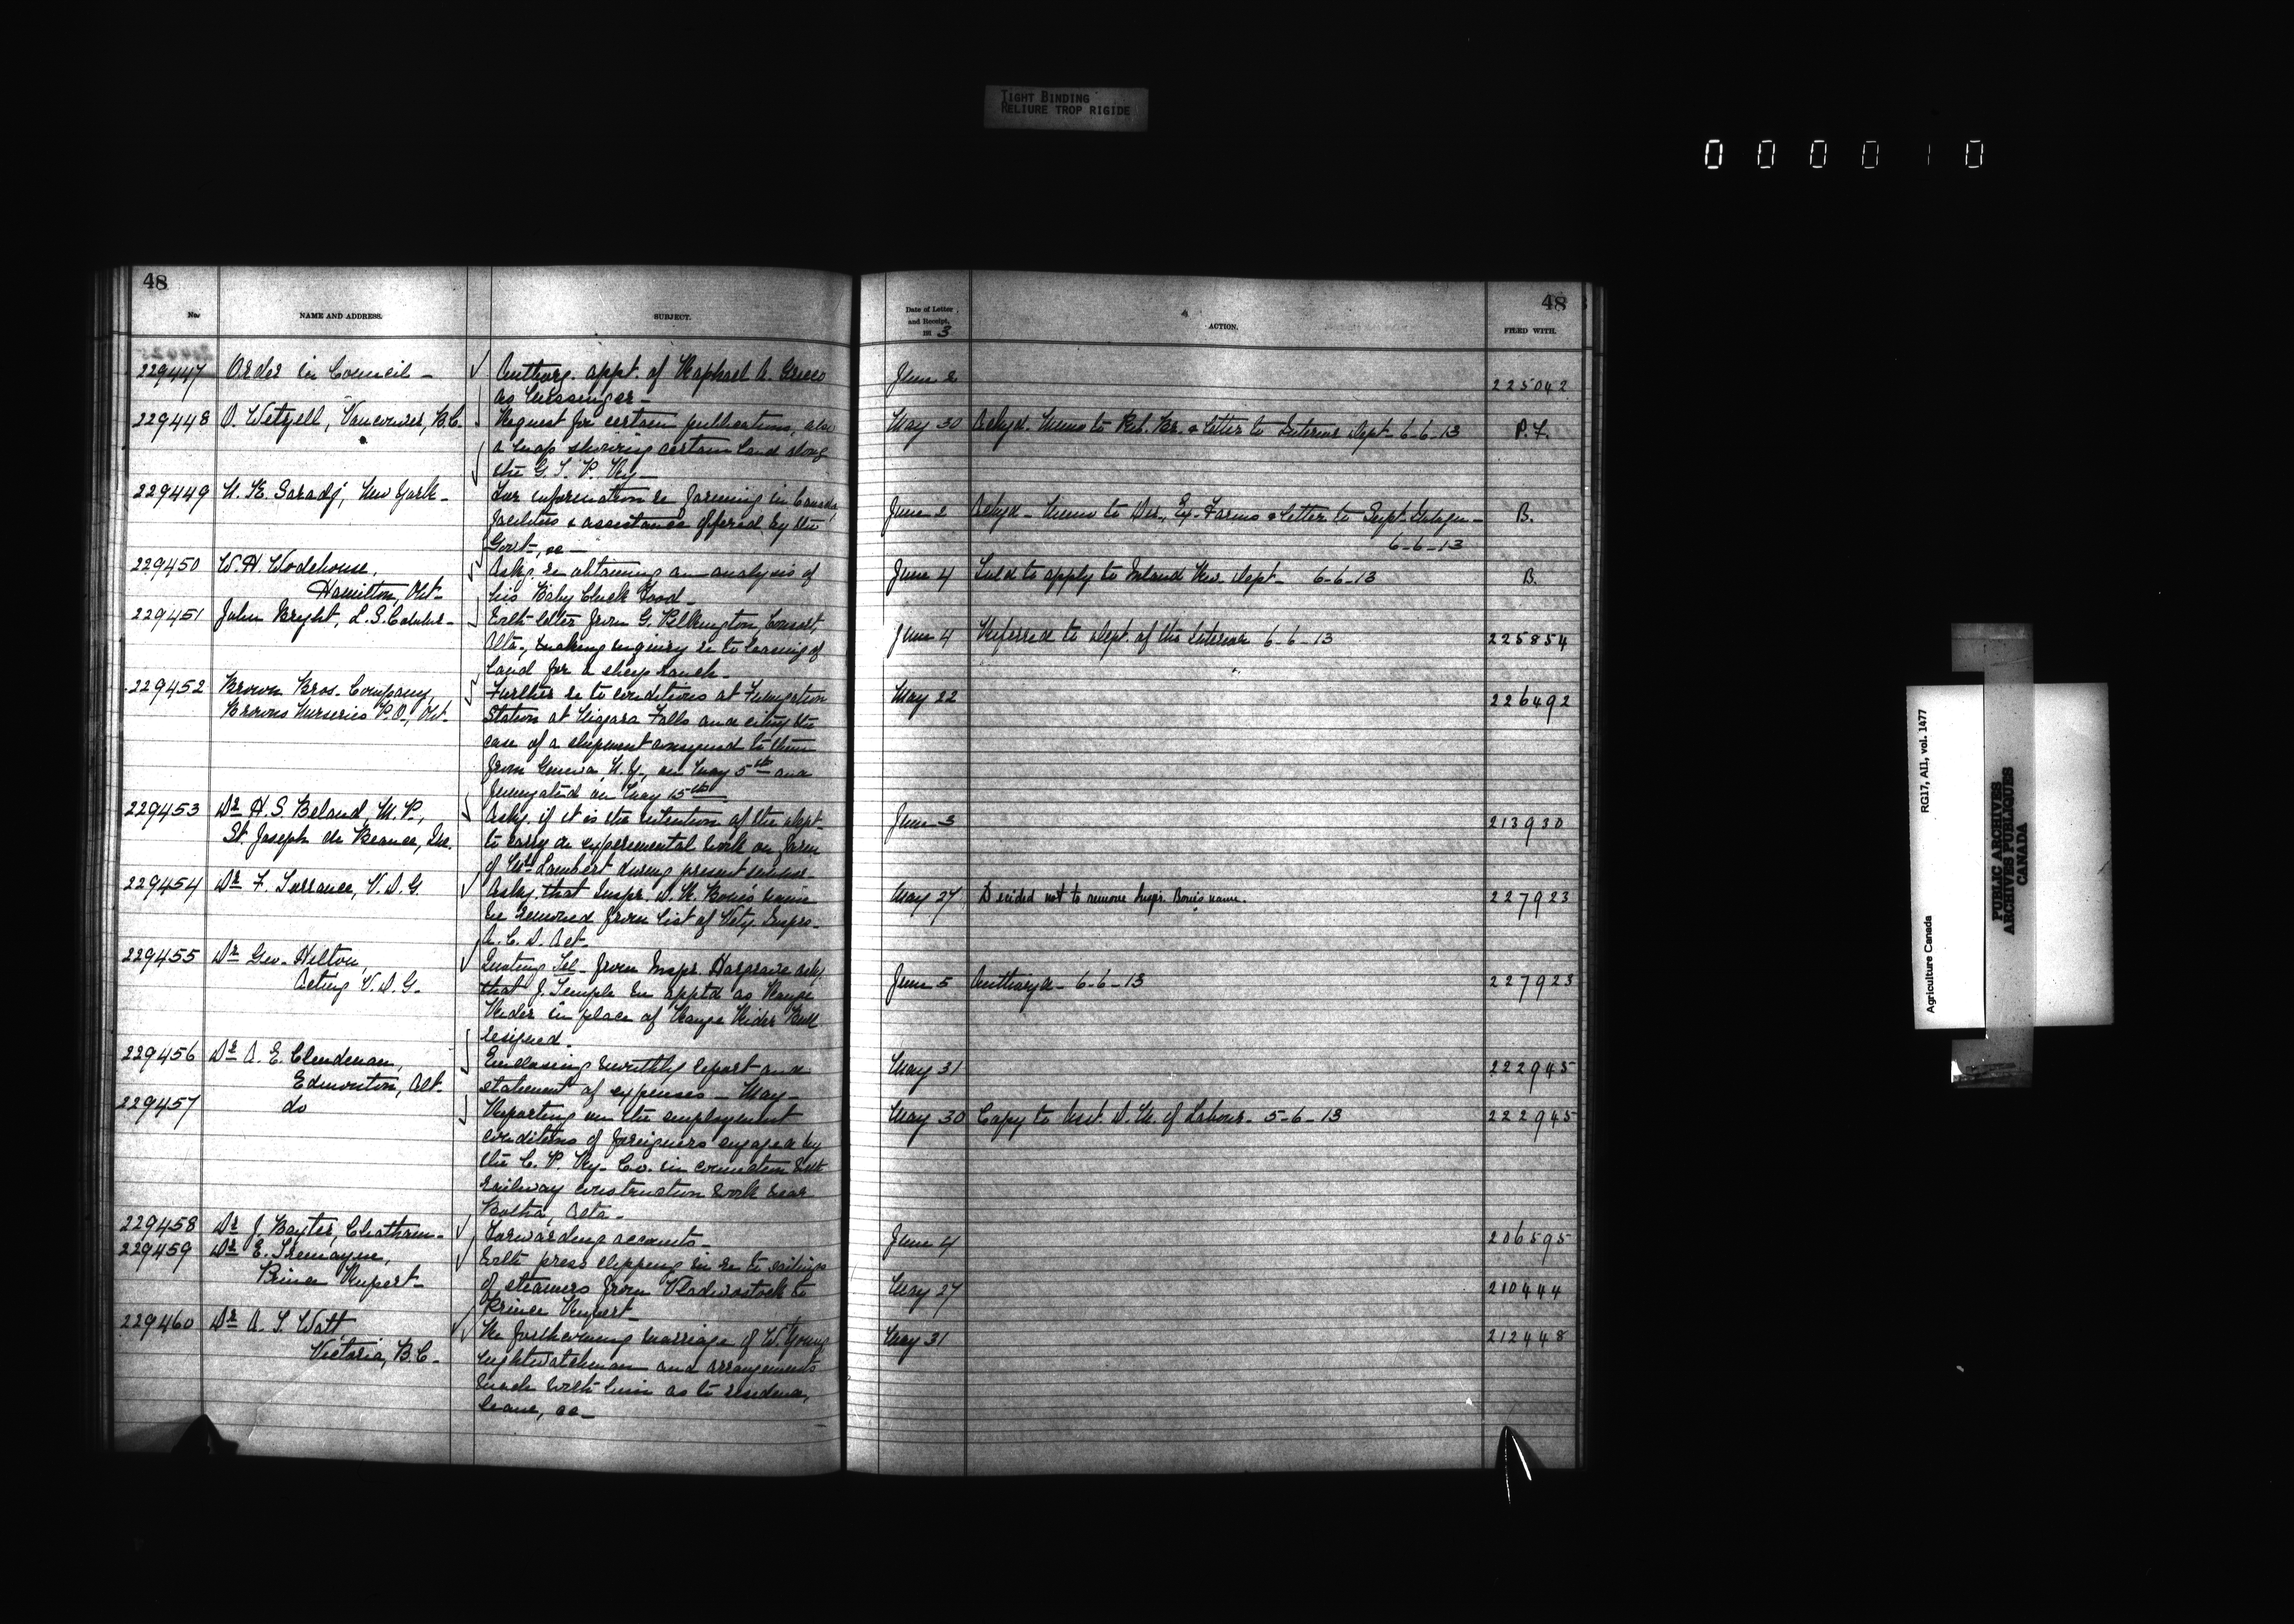 TIGHT BINDING
RELIURE TROP RIGIDE
000010
48
No.
NAME AND ADDRESS.
SUBJECT.
229447 Order in Council - Authorg. appt. of Raphael A. Greco
as Messenger -
229448 A. Wetzell, Vancouver, B.C. Request for certain publications, also
a map showing certain land along
the G. T. P. Ry -
229449 New York - For information re farming in Canada,
facilities & assistance offered by the
Govt., &c -
229450 W. H. Wodehouse, Askg. re obtaining an analysis of
Hamilton, Ont - his Baby Chick Food -
229451 John Bright, L. S. Commr - With letter from G. Pilkington, Consort,
Alta., making enquiry re to leasing of
land for a sheep ranch -
229452 Brown Bros. Company, Further re to conditions at Fumigation
Browns Nurseries P.O., Ont. Station at Niagara Falls and citing the
case of a shipment consigned to them
from Geneva, N.Y., on May 5th and
fumigated on May 15th
229453 Dr H. S. Beland, M.P., Askg. if it is the intention of the Dept.
St. Joseph de Beauce, Que. to carry on experimental work on farm
of Lambert during present
229454 Dr F. Torrance, V. D. G. Askg. that Inspr. name
be removed from list of Vety. Insprs -
A. C. D. Act -
229455 Dr Geo. Hilton, Quoting Tel - from Inspr. Hargrave askg.
Acting V. D. G. that J. Temple be apptd as Range
Rider in place of Range Rider Bull
resigned -
229456 Dr A. E. Clendenan, Enclosing monthly report and
Edmonton, Alt. statement of expenses - May -
229457 do Reporting on the employment
conditions of foreigners engaged by
the C. P. Ry. Co. in connection with
railway construction work near
Alta -
229458 Dr J. Baxter, Chatham - Forwarding accounts -
229459 Dr E. Tremayne, With press clipping in re to sailings
Prince Rupert - of steamers from Vladivostock to
Prince Rupert -
229460 Dr A. T. Watt Re forthcoming marriage of W. Young
Victoria, B.C. - nightwatchman and arrangements
made with him as to residence,
leave, &c -
48
Date of Letter
and Receipt,
191 3
ACTION.
FILED WITH.
June 2 225042
May 30 Ackgd. Memo to Pub. Br. & letter to Interior Dept - 6-6-13 P.F.
June 2 Ackgd - Memo to Dir., Ex. Farms & letter to Supt. - B.
6-6-13
June 4 Told to apply to Inland Rev. Dept - 6-6-13 B.
June 4 Referred to Dept. of the Interior 6-6-13 225854
May 22 226492
June 3 213930
May 27 Decided not to remove Inspr. name. 227923
June 5 Authorizd - 6-6-13 227923
May 31 222945
May 30 Copy to Asst. D. M. of Labour - 5-6-13 222945
June 4 206595
May 27 210444
May 31 212448
Agriculture Canada RG17, AII, vol. 1477
PUBLIC ARCHIVES
ARCHIVES PUBLIQUES
CANADA